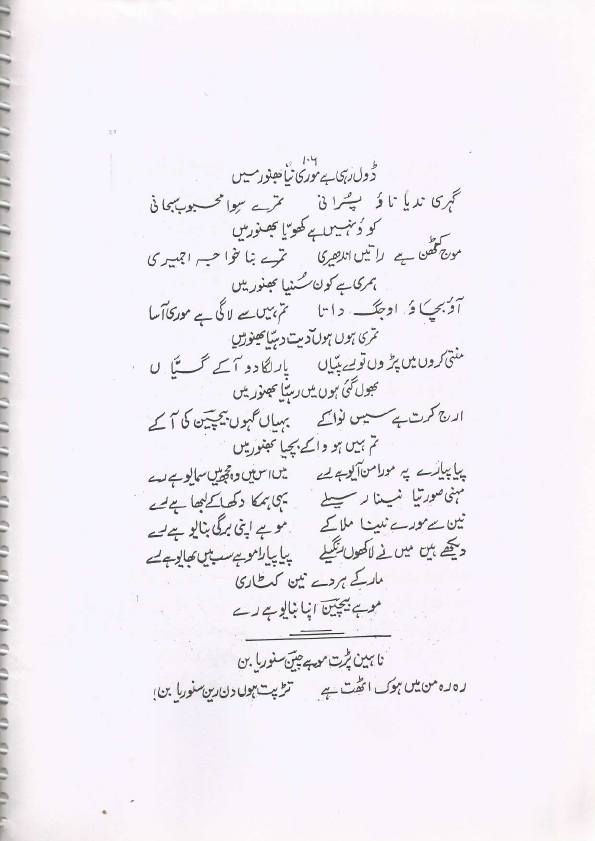 ۱۰۶
ڈول رہی ہے موری نیّا بھنور میں
گہری ندیا ناؤ پُرانی تمرے سِوا محبوب سبحانی
کوؤ نہیں ہے کھویّا بھنور میں
موج کٹھن ہے راتیں اندھیری تمرے بنا خواجہ اجمیری
ہمری ہے کون سُنیا بھنور میں
آؤ بچاؤ او جگ داتا تم ہیں سے لاگی ہے موری آسا
تمری ہوں ہوں آدیت دہیّا بھنور میں
منتی کروں میں پڑوں تورے پیّاں پار لگا دو آ کے گسیّاں
بھول گئی ہوں میں رہیّا بھنور میں
ارج کرت ہے سیس نوا کے بہیاں گہوں بیچین کی آ کے
تم ہیں ہو وا کے بچیا بھنور میں
پیا پیارے پہ مورا من آیو ہے رے میں اس میں وہ مجھ میں سمایو ہے رے
مہنی صورتیا نینا رسیلے یہی ہمکا دکھا کے لبھا ہے رے
نین سے مورے نینا ملا کے موہے اپنی برگی بنایو ہے رے
دیکھے ہیں میں نے لاکھوں رنگیلے پیا پیارا موہے سب میں بھایو ہے رے
مار کے ہردے نین کٹاری
موہے بیچین اپنا بنایو ہے رے
ناہین پڑت موہے چین سنوریا بن
رہ رہ من میں ہوک اٹھت ہے تڑپت ہوں دن رین سنوریا بن